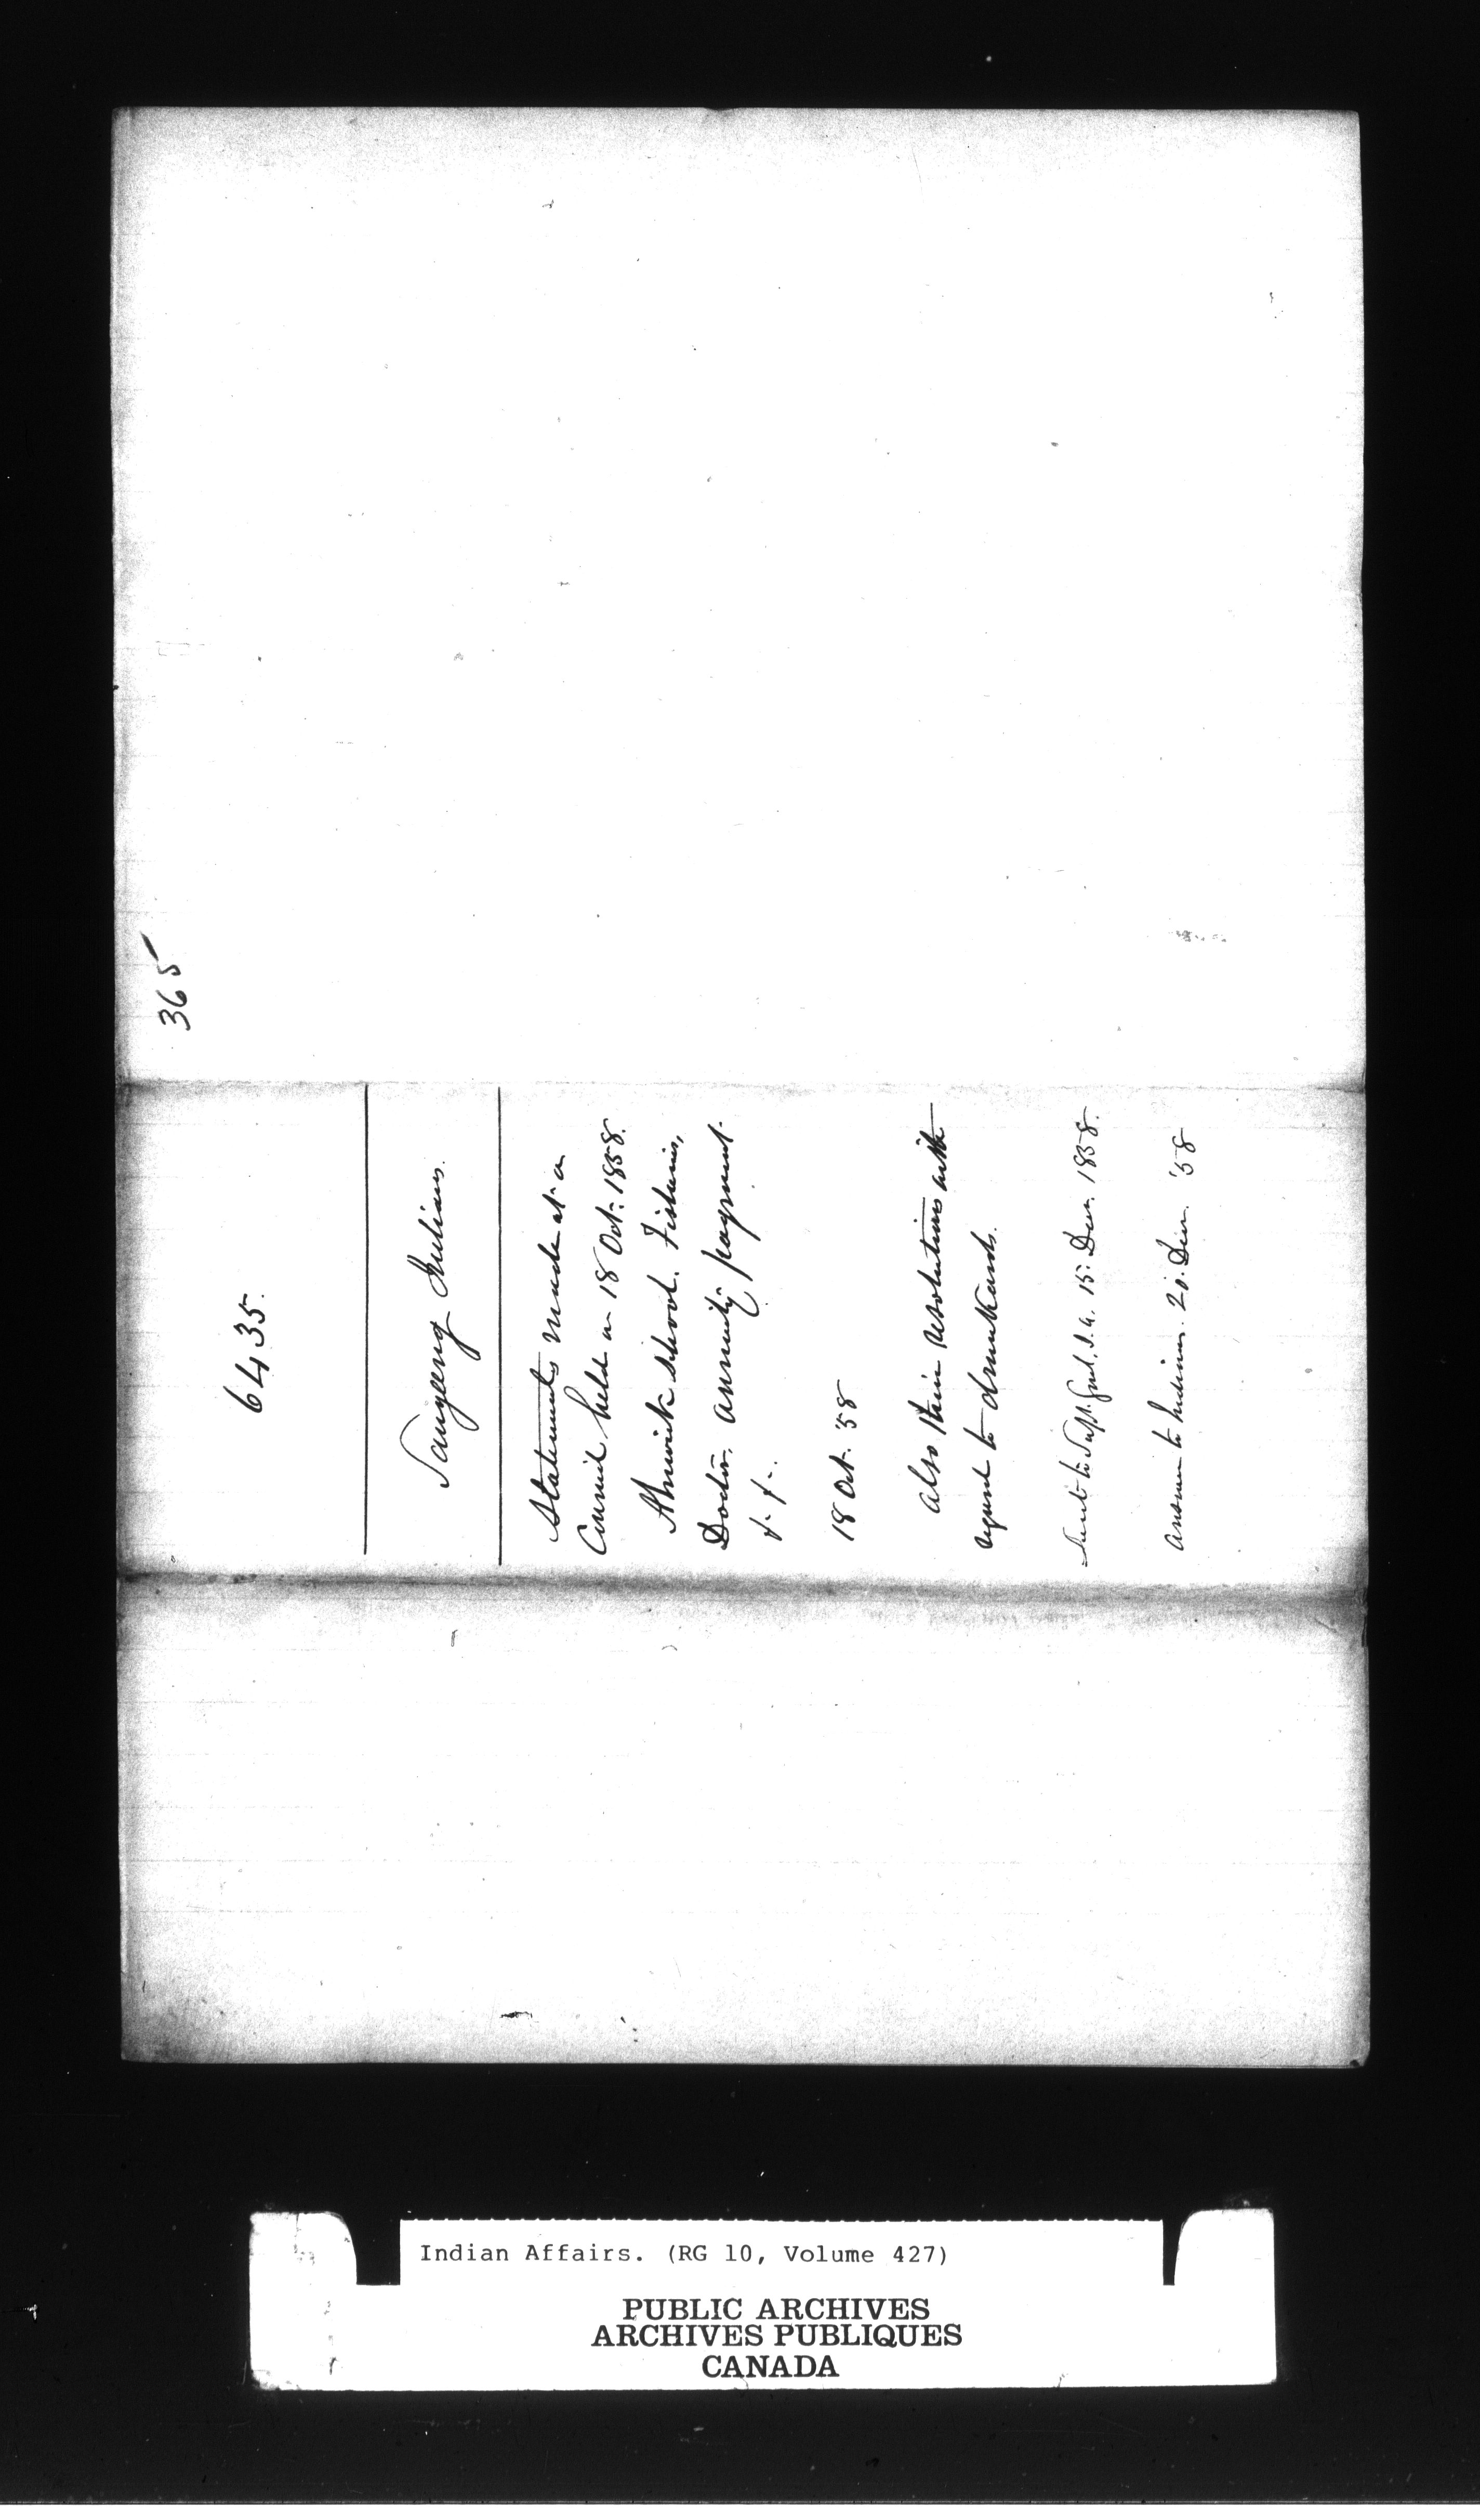 365
6435.
Saugeeng Indians.
Statements made at a
Council held on 18 Oct: 1858.
Alnwick School. Fisheries,
Doctor, annuity payment.
&. &.
18 Oct. '58
also their resolutions with
regard to drunkards.
Sent to Supt. Genl. I. A. 15. Decr. 1858.
answer to Indians. 20. Decr. '58
Indian Affairs. (RG 10, Volume 427)
PUBLIC ARCHIVES
ARCHIVES PUBLIQUES
CANADA